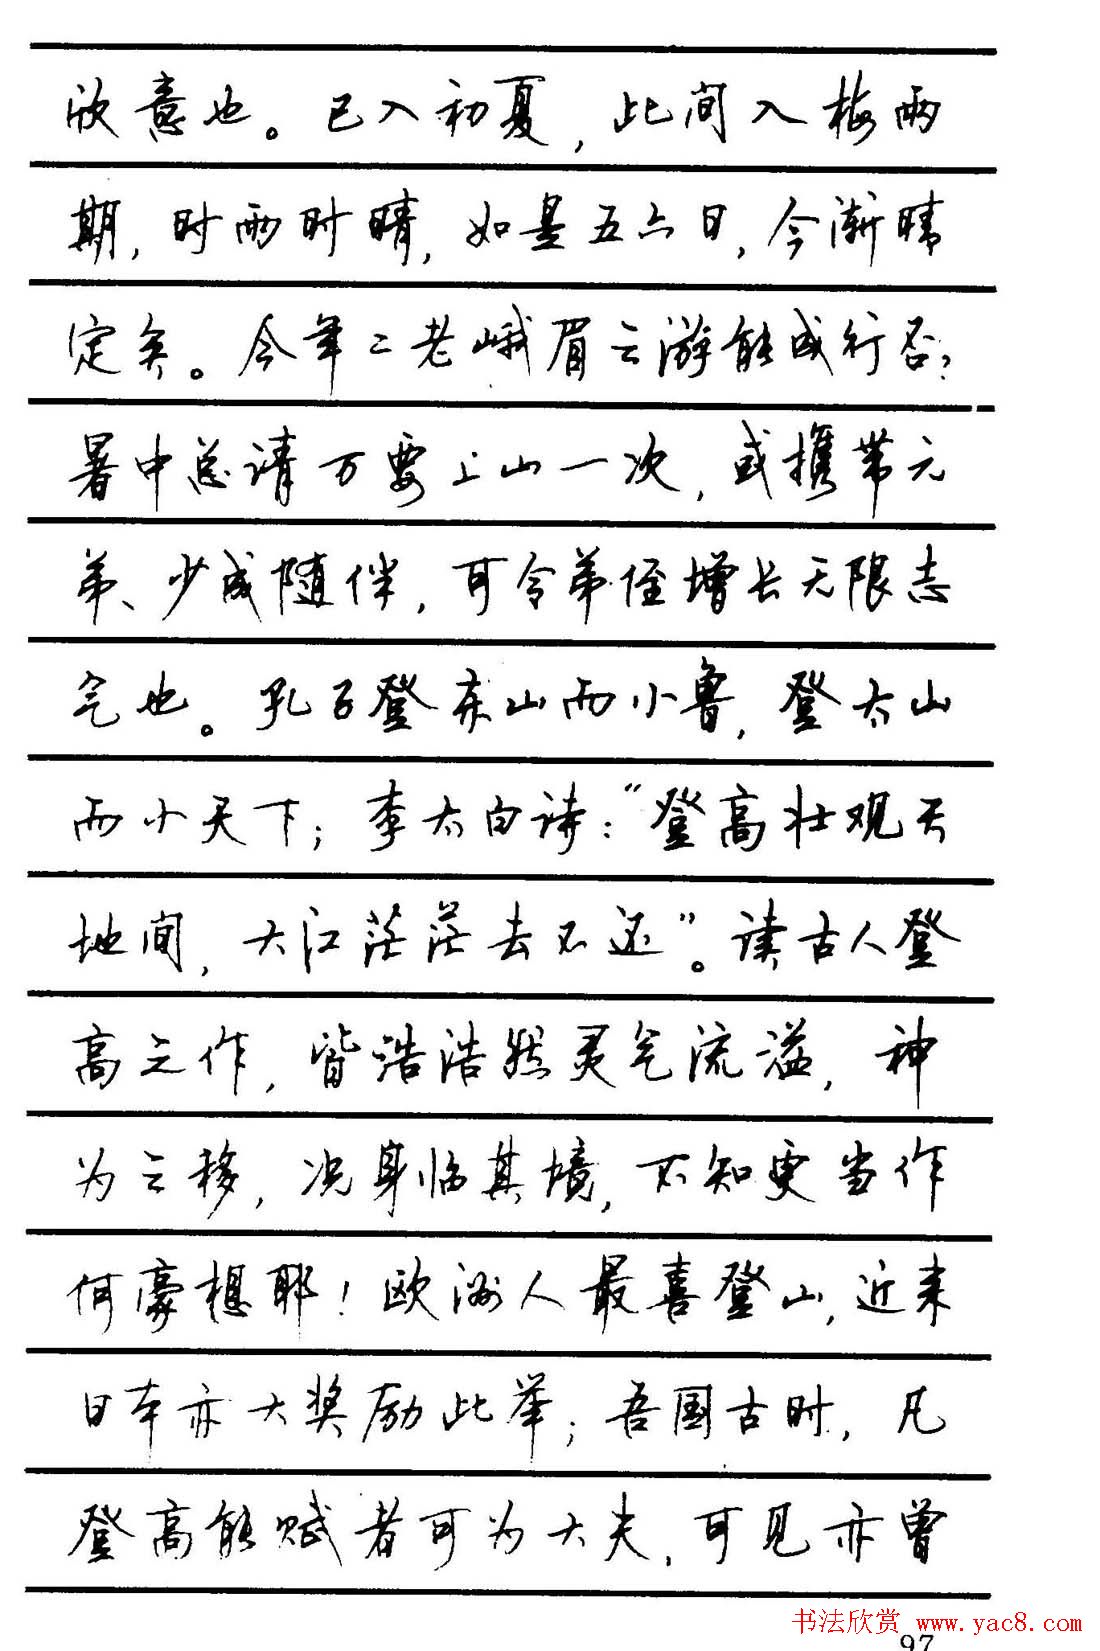 欣意也。已入初夏，此间入梅雨
期，时雨时晴，如是五六日，今渐晴
定矣。今年二老峨眉云游能成行否？
暑中总请万要上山一次，或携带元
弟、少成随伴，可令弟侄增长无限志
气也。孔子登东山而小鲁，登太山
而小天下；李太白诗：“登高壮观天
地间，大江茫茫去不还”。读古人登
高之作，皆浩浩然灵气流溢，神
为云移，况身临其境，不知更当作
何豪想耶！欧洲人最喜登山，近来
日本亦大奖励此举；吾国古时，凡
登高能赋者可为大夫，可见亦曾
书法欣赏 www.yac8.com
97